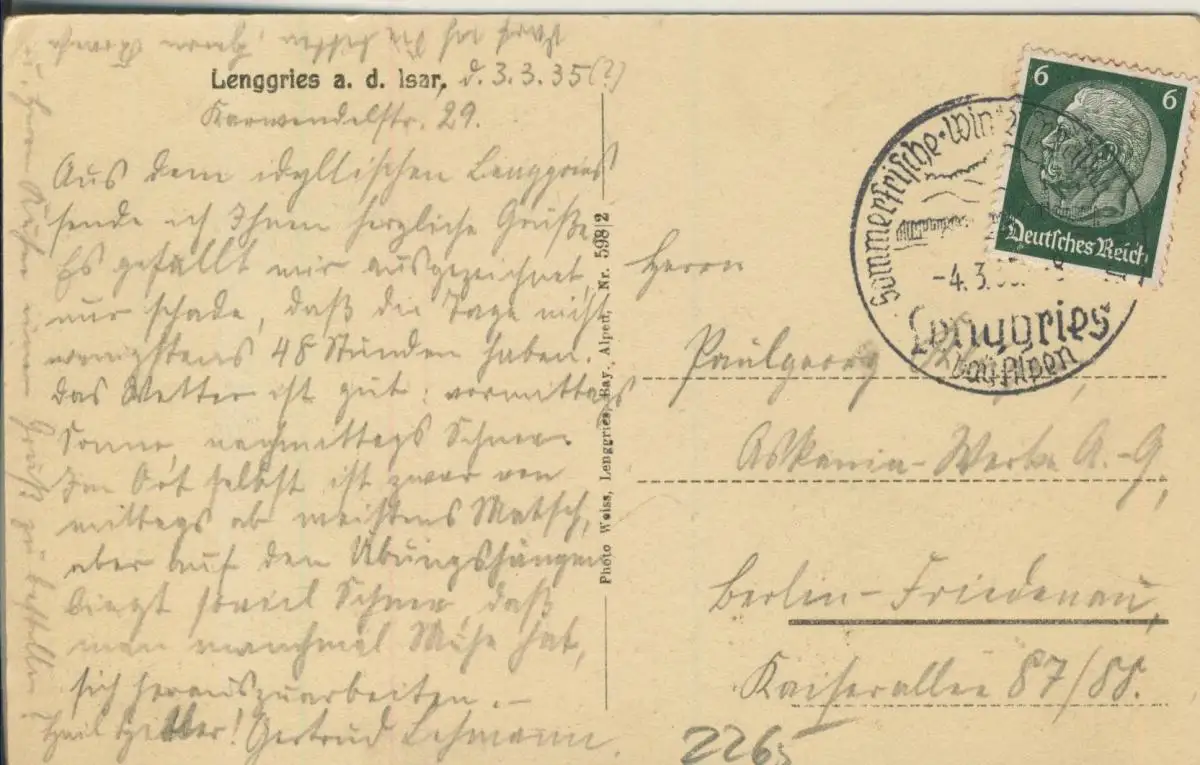 Lenggries a. d. Isar, d. 3.3.35 (?)
Karwendelstr. 29.
Aus dem idyllischen Lenggries
sende ich Ihnen herzliche Grüße.
Es gefällt mir ausgezeichnet,
nur schade, daß die Tage nicht
wenigstens 48 Stunden haben.
Das Wetter ist gut: vormittags
Sonne nachmittags Schnee.
Im Ort selbst ist zwar von
mittags ab meistens Matsch,
aber auf den Übungshängen
liegt soviel Schnee, daß
man manchmal Mühe hat,
sich herauszuarbeiten. –
Heil Hitler! Gertrud Lehmann.
Photo Weiss, Lenggries, Bay. Alpen, Nr. 598|2
6 6
Deutsches Reich
Sommerfrische · Win
-4.3.
Lenggries
bay. Alpen
Herrn
Paulgeorg
Askania-Werke A.-G,
Berlin-Friedenau,
Kaiserallee 87/88.
2265